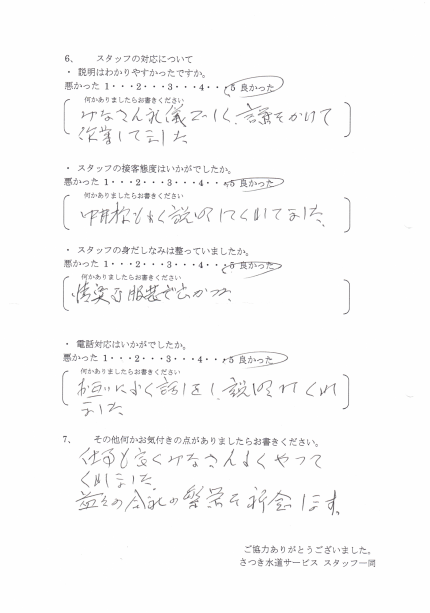 6、 スタッフの対応について
・ 説明はわかりやすかったですか。
悪かった 1・・・2・・・3・・・4・・・5 良かった
何かありましたらお書きください
みなさん礼儀正しく、言葉をかけて
作業してました
・ スタッフの接客態度はいかがでしたか。
悪かった 1・・・2・・・3・・・4・・・5 良かった
何かありましたらお書きください
よく説明してくれてました、
・ スタッフの身だしなみは整っていましたか。
悪かった 1・・・2・・・3・・・4・・・5 良かった
何かありましたらお書きください
清潔な服装でよかった、
・ 電話対応はいかがでしたか。
悪かった 1・・・2・・・3・・・4・・・5 良かった
何かありましたらお書きください
お互いによく話しをし、説明もくれ
ました
7、 その他何かお気付きの点がありましたらお書きください。
仕事も良くみなさんよくやって
くれました
益々の会社の繁栄を祈念します。
ご協力ありがとうございました。
さつき水道サービス スタッフ一同